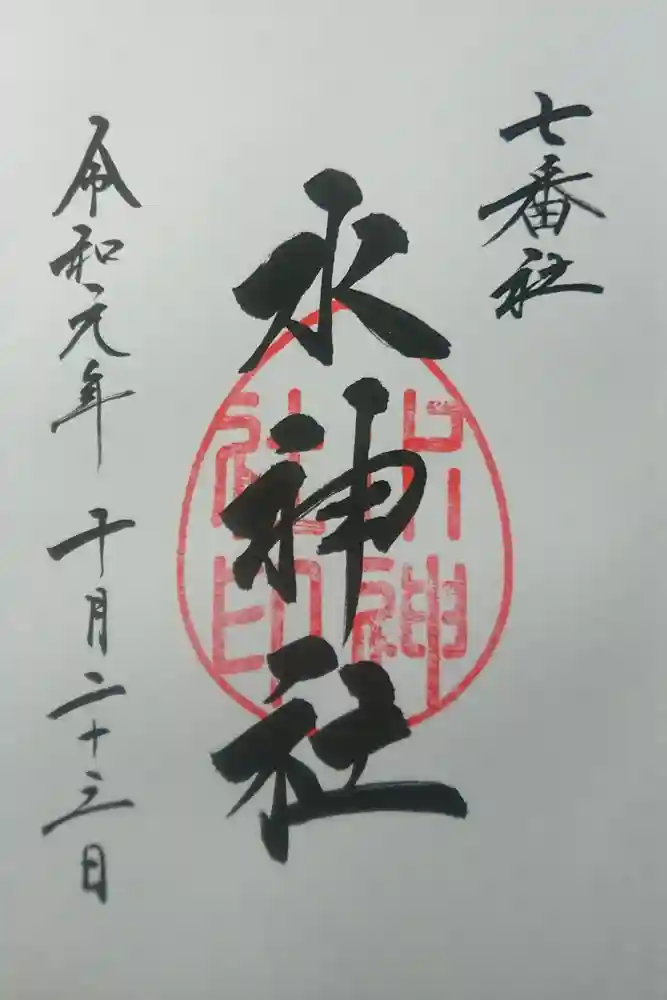 七番社
水神社
水神社印
令和元年 十月二十三日